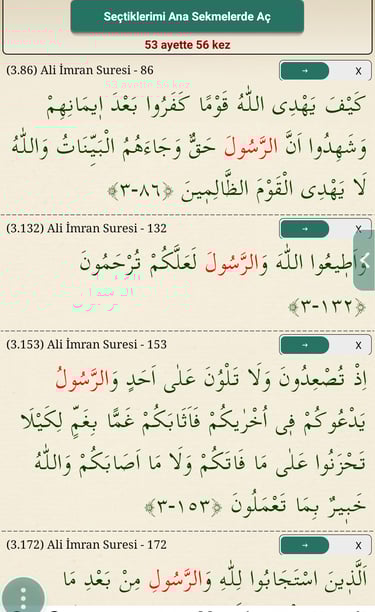 Seçtiklerimi Ana Sekmelerde Aç
53 ayette 56 kez
(3.86) Ali İmran Suresi - 86 → X
كَيْفَ يَهْدِى اللّٰهُ قَوْمًا كَفَرُوا بَعْدَ ا۪يمَانِهِمْ
وَشَهِدُوا اَنَّ الرَّسُولَ حَقٌّ وَجَاءَهُمُ الْبَيِّنَاتُ وَاللّٰهُ
لَا يَهْدِى الْقَوْمَ الظَّالِم۪ينَ ﴿٨٦-٣﴾
(3.132) Ali İmran Suresi - 132 → X
وَاَط۪يعُوا اللّٰهَ وَالرَّسُولَ لَعَلَّكُمْ تُرْحَمُونَ
﴿١٣٢-٣﴾
(3.153) Ali İmran Suresi - 153 → X
اِذْ تُصْعِدُونَ وَلَا تَلْوُنَ عَلٰى اَحَدٍ وَالرَّسُولُ
يَدْعُوكُمْ ف۪ى اُخْرٰيكُمْ فَاَثَابَكُمْ غَمًّا بِغَمٍّ لِكَيْلَا
تَحْزَنُوا عَلٰى مَا فَاتَكُمْ وَلَا مَا اَصَابَكُمْ وَاللّٰهُ
خَب۪يرٌ بِمَا تَعْمَلُونَ ﴿١٥٣-٣﴾
(3.172) Ali İmran Suresi - 172 → X
اَلَّذ۪ينَ اسْتَجَابُوا لِلّٰهِ وَالرَّسُولِ مِنْ بَعْدِ مَا